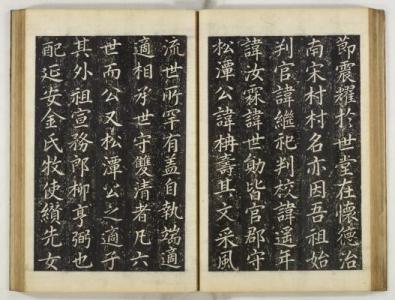 節震耀於世堂在懷德治
南宋村村名亦因吾祖始
判官諱繼祀判校諱遥年
諱汝霖諱世勛皆官郡守
松潭公諱枏壽其文采風
流世所罕有盖自執端適
適相承世守雙清者凡六
世而公又松潭公之適子
其外祖宣務郎柳亨弼也
配延安金氏牧使纘先女